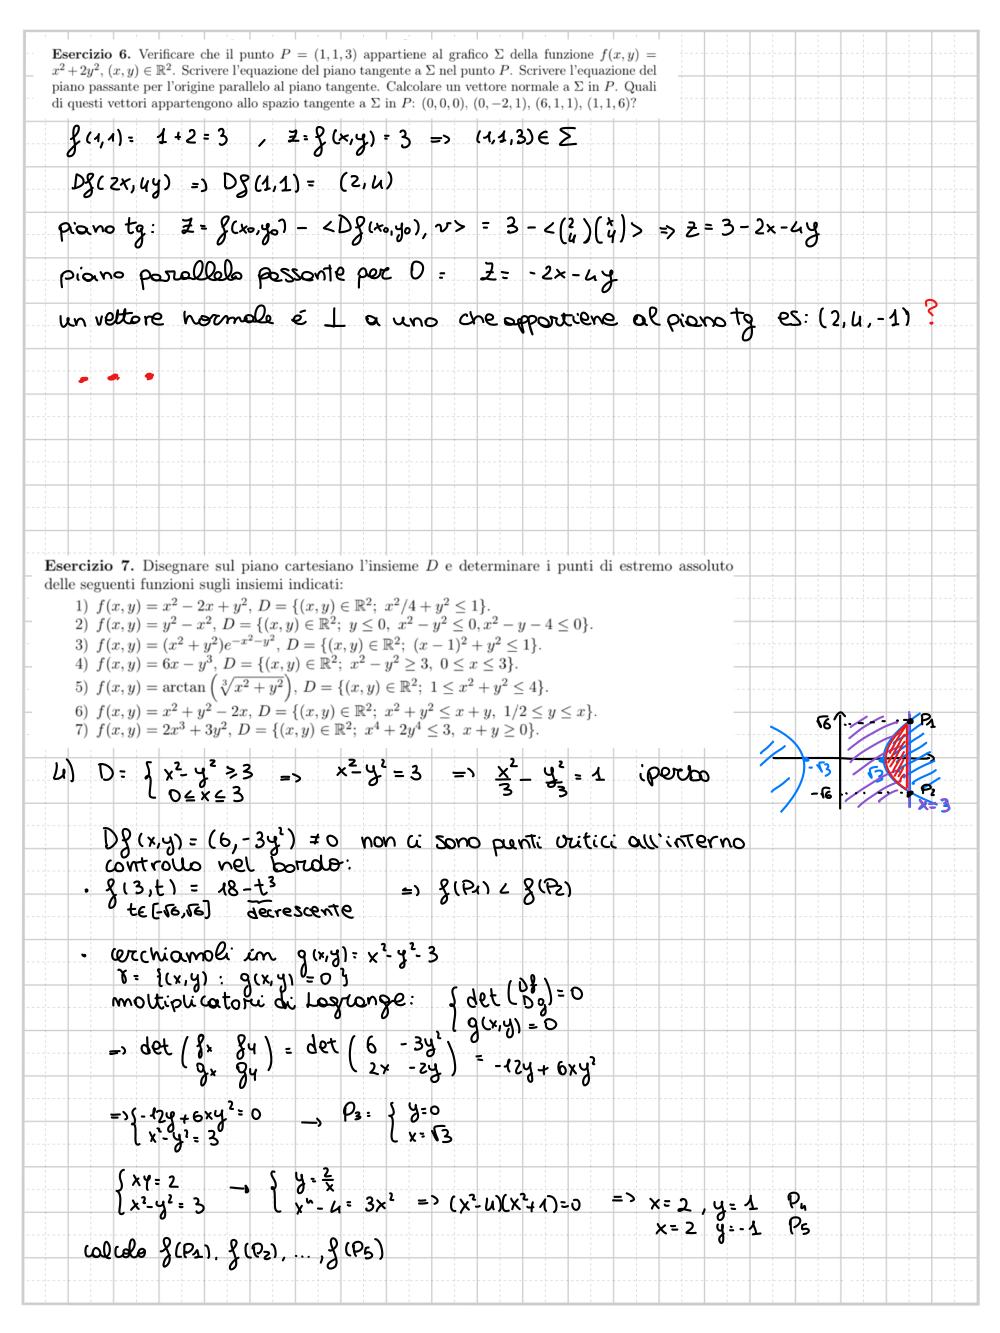 Esercizio 6. Verificare che il punto P = (1, 1, 3) appartiene al grafico Σ della funzione f(x, y) =
x² + 2y², (x, y) ∈ ℝ². Scrivere l'equazione del piano tangente a Σ nel punto P. Scrivere l'equazione del
piano passante per l'origine parallelo al piano tangente. Calcolare un vettore normale a Σ in P. Quali
di questi vettori appartengono allo spazio tangente a Σ in P: (0, 0, 0), (0, −2, 1), (6, 1, 1), (1, 1, 6)?
f(1,1) = 1+2 = 3 , z = f(x,y) = 3 => (1,1,3) ∈ Σ
Df(2x,4y) => Df(1,1) = (2,4)
piano tg: z = f(x₀,y₀) - <Df(x₀,y₀), v> = 3 - <(2 4)(x y)> => z = 3-2x-4y
piano parallelo passante per O = z = -2x-4y
un vettore normale é ⊥ a uno che appartiene al piano tg es: (2,4,-1) ?
. . .
Esercizio 7. Disegnare sul piano cartesiano l'insieme D e determinare i punti di estremo assoluto
delle seguenti funzioni sugli insiemi indicati:
1) f(x, y) = x² − 2x + y², D = {(x, y) ∈ ℝ²; x²/4 + y² ≤ 1}.
2) f(x, y) = y² − x², D = {(x, y) ∈ ℝ²; y ≤ 0, x² − y² ≤ 0, x² − y − 4 ≤ 0}.
3) f(x, y) = (x² + y²)e^{−x²−y²}, D = {(x, y) ∈ ℝ²; (x − 1)² + y² ≤ 1}.
4) f(x, y) = 6x − y³, D = {(x, y) ∈ ℝ²; x² − y² ≥ 3, 0 ≤ x ≤ 3}.
5) f(x, y) = arctan(∛(x² + y²)), D = {(x, y) ∈ ℝ²; 1 ≤ x² + y² ≤ 4}.
6) f(x, y) = x² + y² − 2x, D = {(x, y) ∈ ℝ²; x² + y² ≤ x + y, 1/2 ≤ y ≤ x}.
7) f(x, y) = 2x³ + 3y², D = {(x, y) ∈ ℝ²; x⁴ + 2y⁴ ≤ 3, x + y ≥ 0}.
√6 P1
-√3 √3
-√6 P2
x=3
4) D = { x²-y² ≥ 3 => x²-y² = 3 => x²/3 - y²/3 = 1 iperbo
0 ≤ x ≤ 3
Df(x,y) = (6,-3y²) ≠ 0 non ci sono punti critici all'interno
controllo nel bordo:
· f(3,t) = 18-t³ => f(P1) < f(P2)
t∈[-√6,√6] decrescente
· cerchiamoli in g(x,y) = x²-y²-3
γ = {(x,y) : g(x,y) = 0}
moltiplicatori di Lagrange: { det (Df Dg) = 0
g(x,y) = 0
=> det (fx fy gx gy) = det (6 -3y² 2x -2y) = -12y+6xy²
=> { -12y+6xy² = 0 → P3 = { y=0
x²-y² = 3 x=√3
{ xy = 2 → { y = 2/x
x²-y² = 3 x⁴-4 = 3x² => (x²-4)(x²+1)=0 => x=2, y=1 P4
x=2 y=-1 P5
calcolo f(P1), f(P2), ..., f(P5)